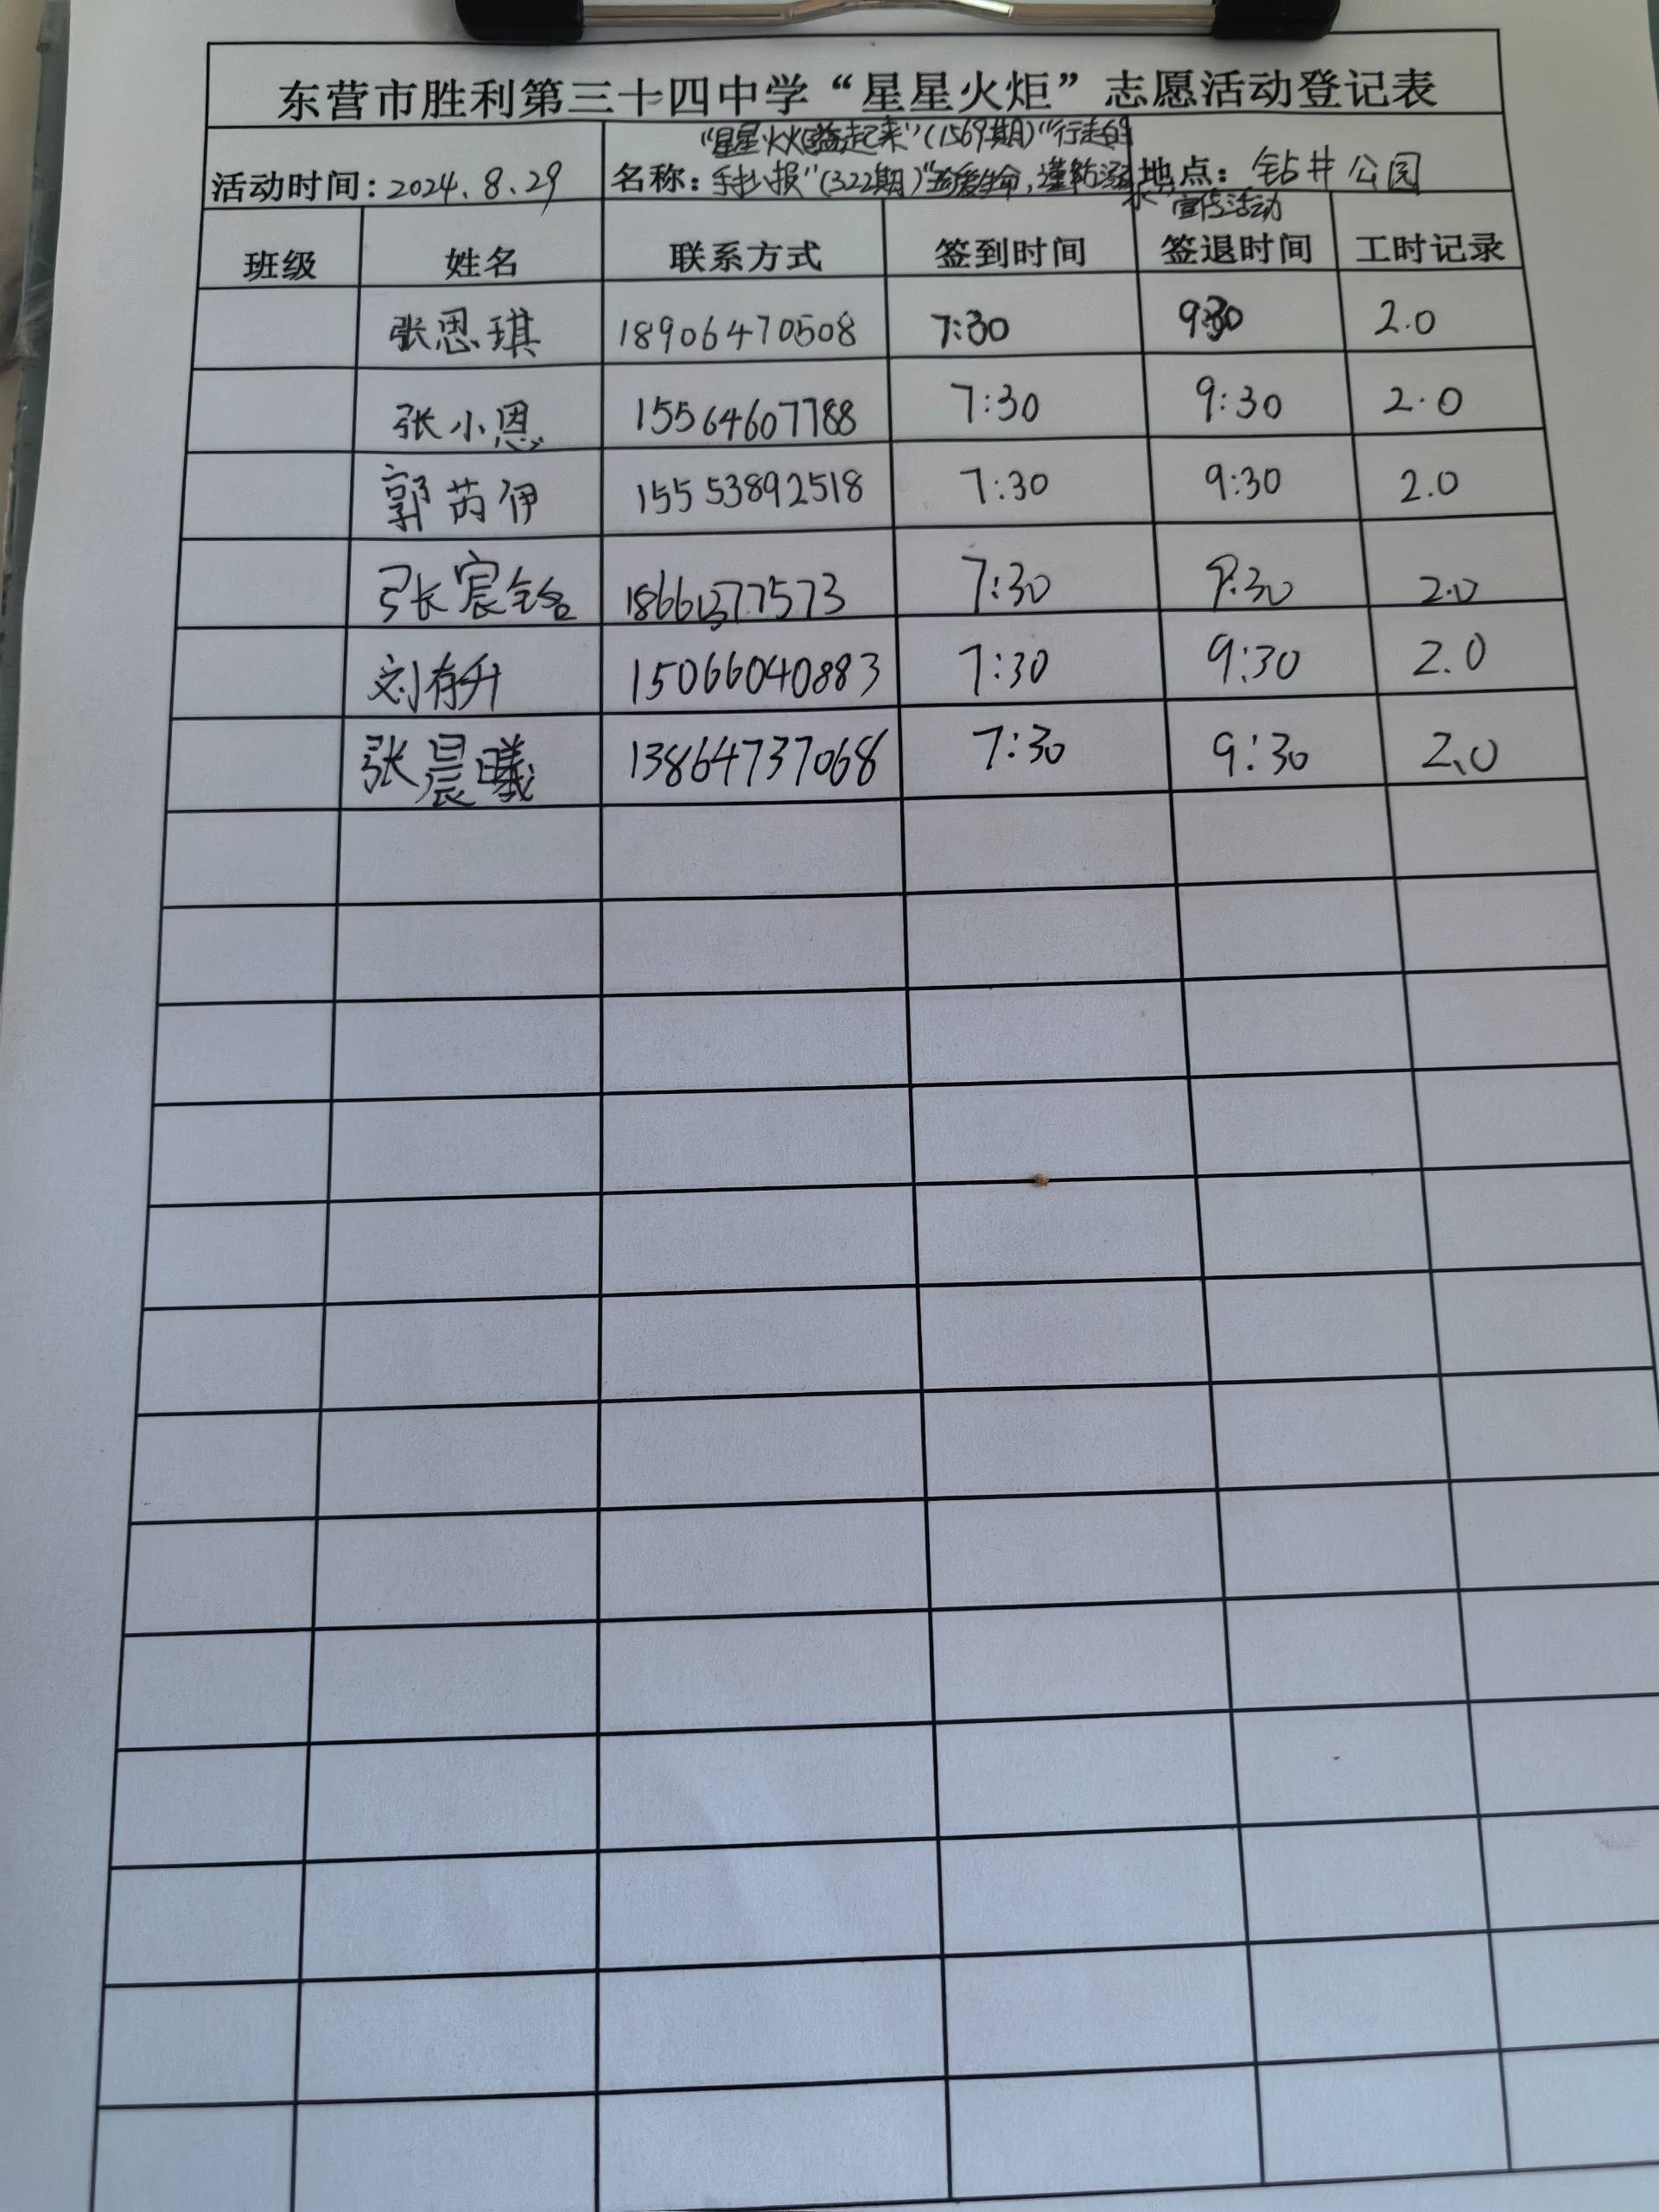 东营市胜利第三十四中学“星星火炬”志愿活动登记表
活动时间：2024.8.29 名称：“星星火炬益起来”（1569期）“行走的手抄报”（322期）“珍爱生命，谨防溺水”宣传活动 地点：钻井公园
班级 姓名 联系方式 签到时间 签退时间 工时记录
张恩琪 18906470508 7:30 9:30 2.0
张小恩 15564607788 7:30 9:30 2.0
郭芮伊 15553892518 7:30 9:30 2.0
张宸铭 7:30 9:30 2.0
刘存升 15066040883 7:30 9:30 2.0
张晨曦 13864737068 7:30 9:30 2.0